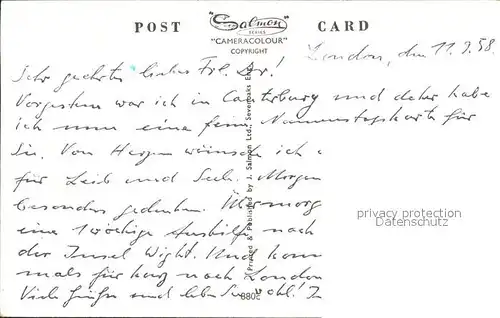 POST CARD
Salmon
SERIES
"CAMERACOLOUR"
COPYRIGHT
London, den 11.9.58.
Sehr geehrtes liebes Frl. Dr.!
Vorgestern war ich in Canterbury und daher habe
ich nun eine feine Namenstagskarte für
Sie. Von Herzen wünsche ich
für Leib und Seele. Morgen
besonders gedenken. Übermorg
eine 1 wöchige Aushilfe nach
der Insel Wight. Und kom
mals für kurz nach London
Viele Grüße und leben Sie wohl! I
Printed & Published by J. Salmon Ltd., Sevenoaks Eng.
880c
privacy protection
Datenschutz